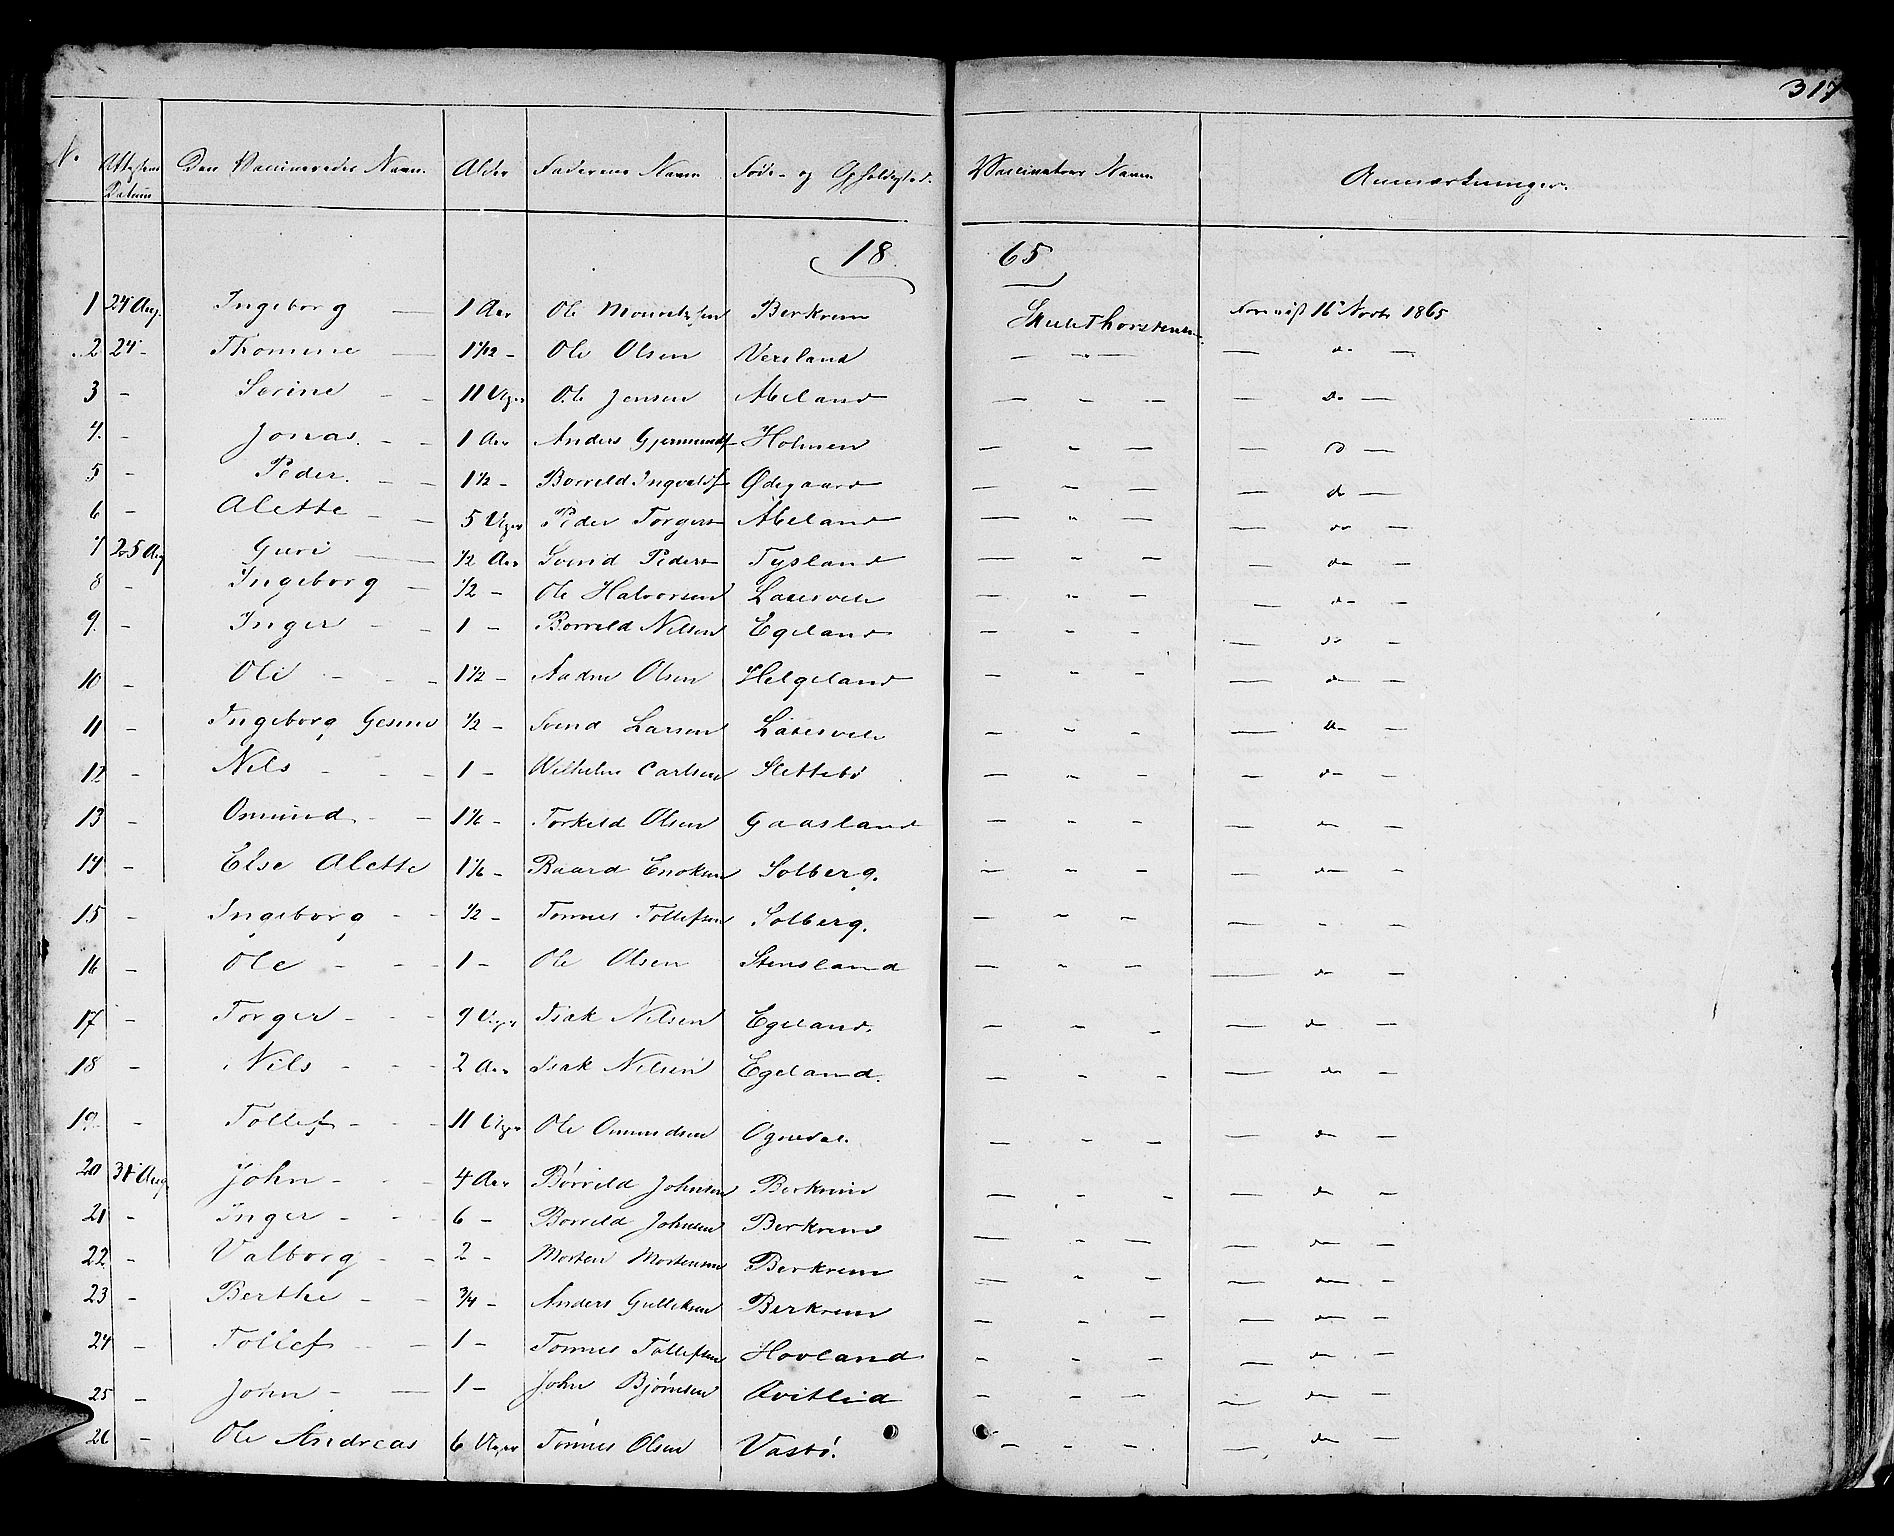 317
N. Attestens Datum Den Vaccineredes Navn. Alder Faderens Navn Føde- og Opholdssted. Vaccinators Navn Anmærkninger.
1865
1 24 Aug. Ingeborg — 1 Aar Ole Mouritzsen Berkrem Thorsteinsen 16 Novbr 1865
2 24 - Thomine — 1 1/12 - Ole Olsen Versland — " — — do —
3 - Serine - - 11 Uger Ole Jensen Abeland — - — — do —
4. - Jonas. - - 1 Aar Anders Gjermunds Holmen — - — — do —
5 - Peder. - - 1 1/2 - Borrild Ingvalds Ødegaard — - — — do —
6 - Alette - - 5 Uger Peder Torgers Abeland — " — — do —
7 25 Aug Guri — 1/2 Aar Svend Peders Tysland — - — — do —
8 - Ingeborg — 1/2 - Ole Halvorsen — - — — do —
9. - Inger - - 1 - Borrild Nilsen Egeland — - — — do —
10 - Ole - - 1 1/2 - Aadne Olsen Helgeland — - — — do —
11 - Ingeborg Gesine 1/2 - Svend Larsen — - — — do —
12 - Nils - - 1 - Wilhelm Carlsen Slettebø — - — — do —
13 - Omund - - 1 1/6 - Torkild Olsen Gaasland — - — — do —
14 - Else Alette 1 1/6 - Baard Enoksen Solberg. — - — — do —
15 - Ingeborg - - 1/2 - Tønnes Tollefsen Solberg. — - — — - —
16 - Ole - - 1 - Ole Olsen Stensland — - — — do —
17 - Torger - - 9 Uger Isak Nilsen Egeland. — - — — do —
18 - Nils - - 2 Aar Isak Nilsen Egeland. — - — — do —
19. - Tollef - - 11 Uger Ole Omundsen Ognedal. — - — — do —
20 31 Aug John - - 4 Aar Børrild Johnsen Berkrem — - — — do —
21 - Inger - - 6 - Borrild Johnsen Berkrem — - — — do —
22 - Valborg - - 2 - Morten Mortensen Berkrem — - — — do —
23 - Berthe - - 3/4 - Anders Gulliksen Berkrem — - — — do —
24 - Tollef - - 1 - Tønnes Tollefsen Hovland — - — — do —
25 - John - — 1 - John Bjørnsen Qvitlid — - — — do —
26 - Ole Andreas 6 Uger Tønnes Olsen Vasbø. — - — — do —